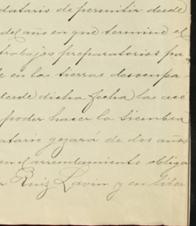 datario de permitir desde
del ano en que termine el
trabajos preparatorios pa
e en las tierras desocupa
desde dicha fecha las
poder hacer la siembra
atario gozará de dos años
en el arrendamiento obliga
Ruiz Lavin y en